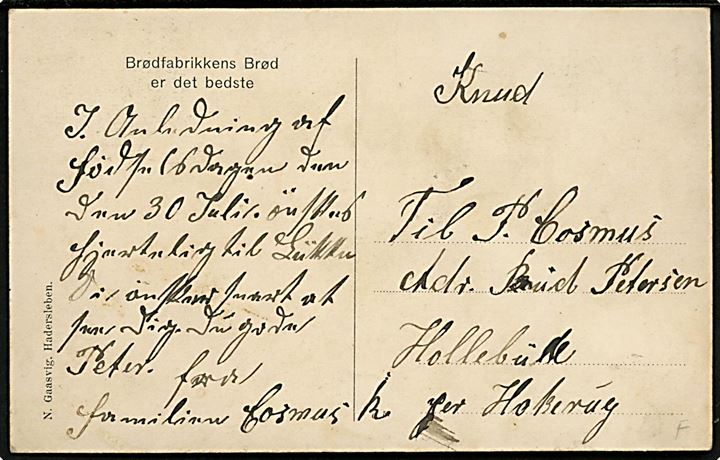 Brødfabrikkens Brød
er det bedste
I. Anledning af
Fødselsdagen den
den 30 Juli. önskes
hjertelig til Lükke
Vi önsker snart at
see dig. du gode
Peter. fra
familien Cosmus
N. Gaasvig, Hadersleben.
Knud
Til P. Cosmus
Adr. Knud Petersen
Hollebüll
per Hokerüg
F